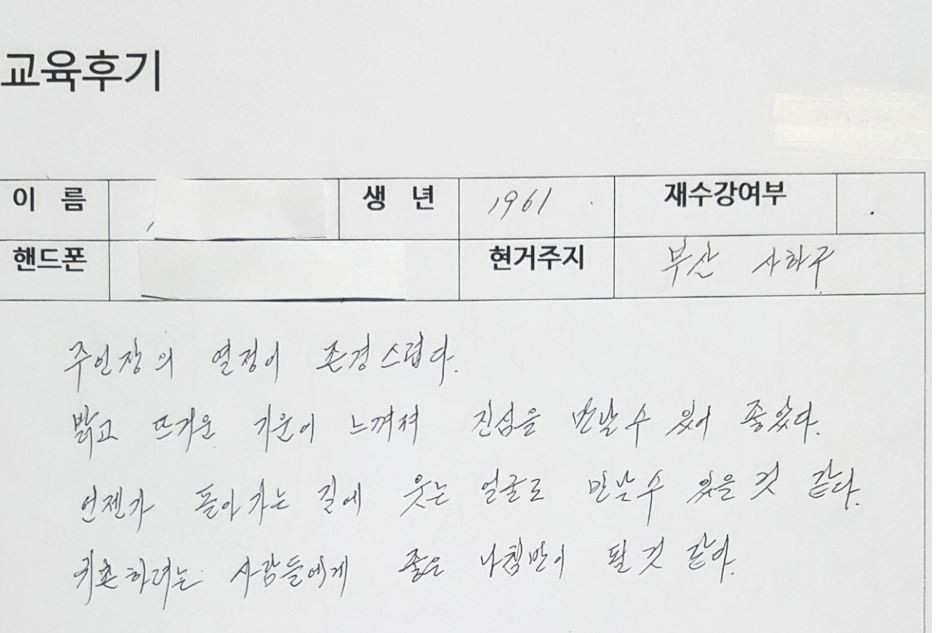 교육후기
이 름 생 년 1961 재수강여부
핸드폰 현거주지 부산 사하구
주인장의 열정이 존경스럽다.
밝고 뜨거운 기운이 느껴져 진심을 만날 수 있어 좋았다.
언젠가 돌아가는 길에 웃는 얼굴로 만날 수 있을 것 같다.
귀촌하려는 사람들에게 좋은 나침반이 될 것 같다.